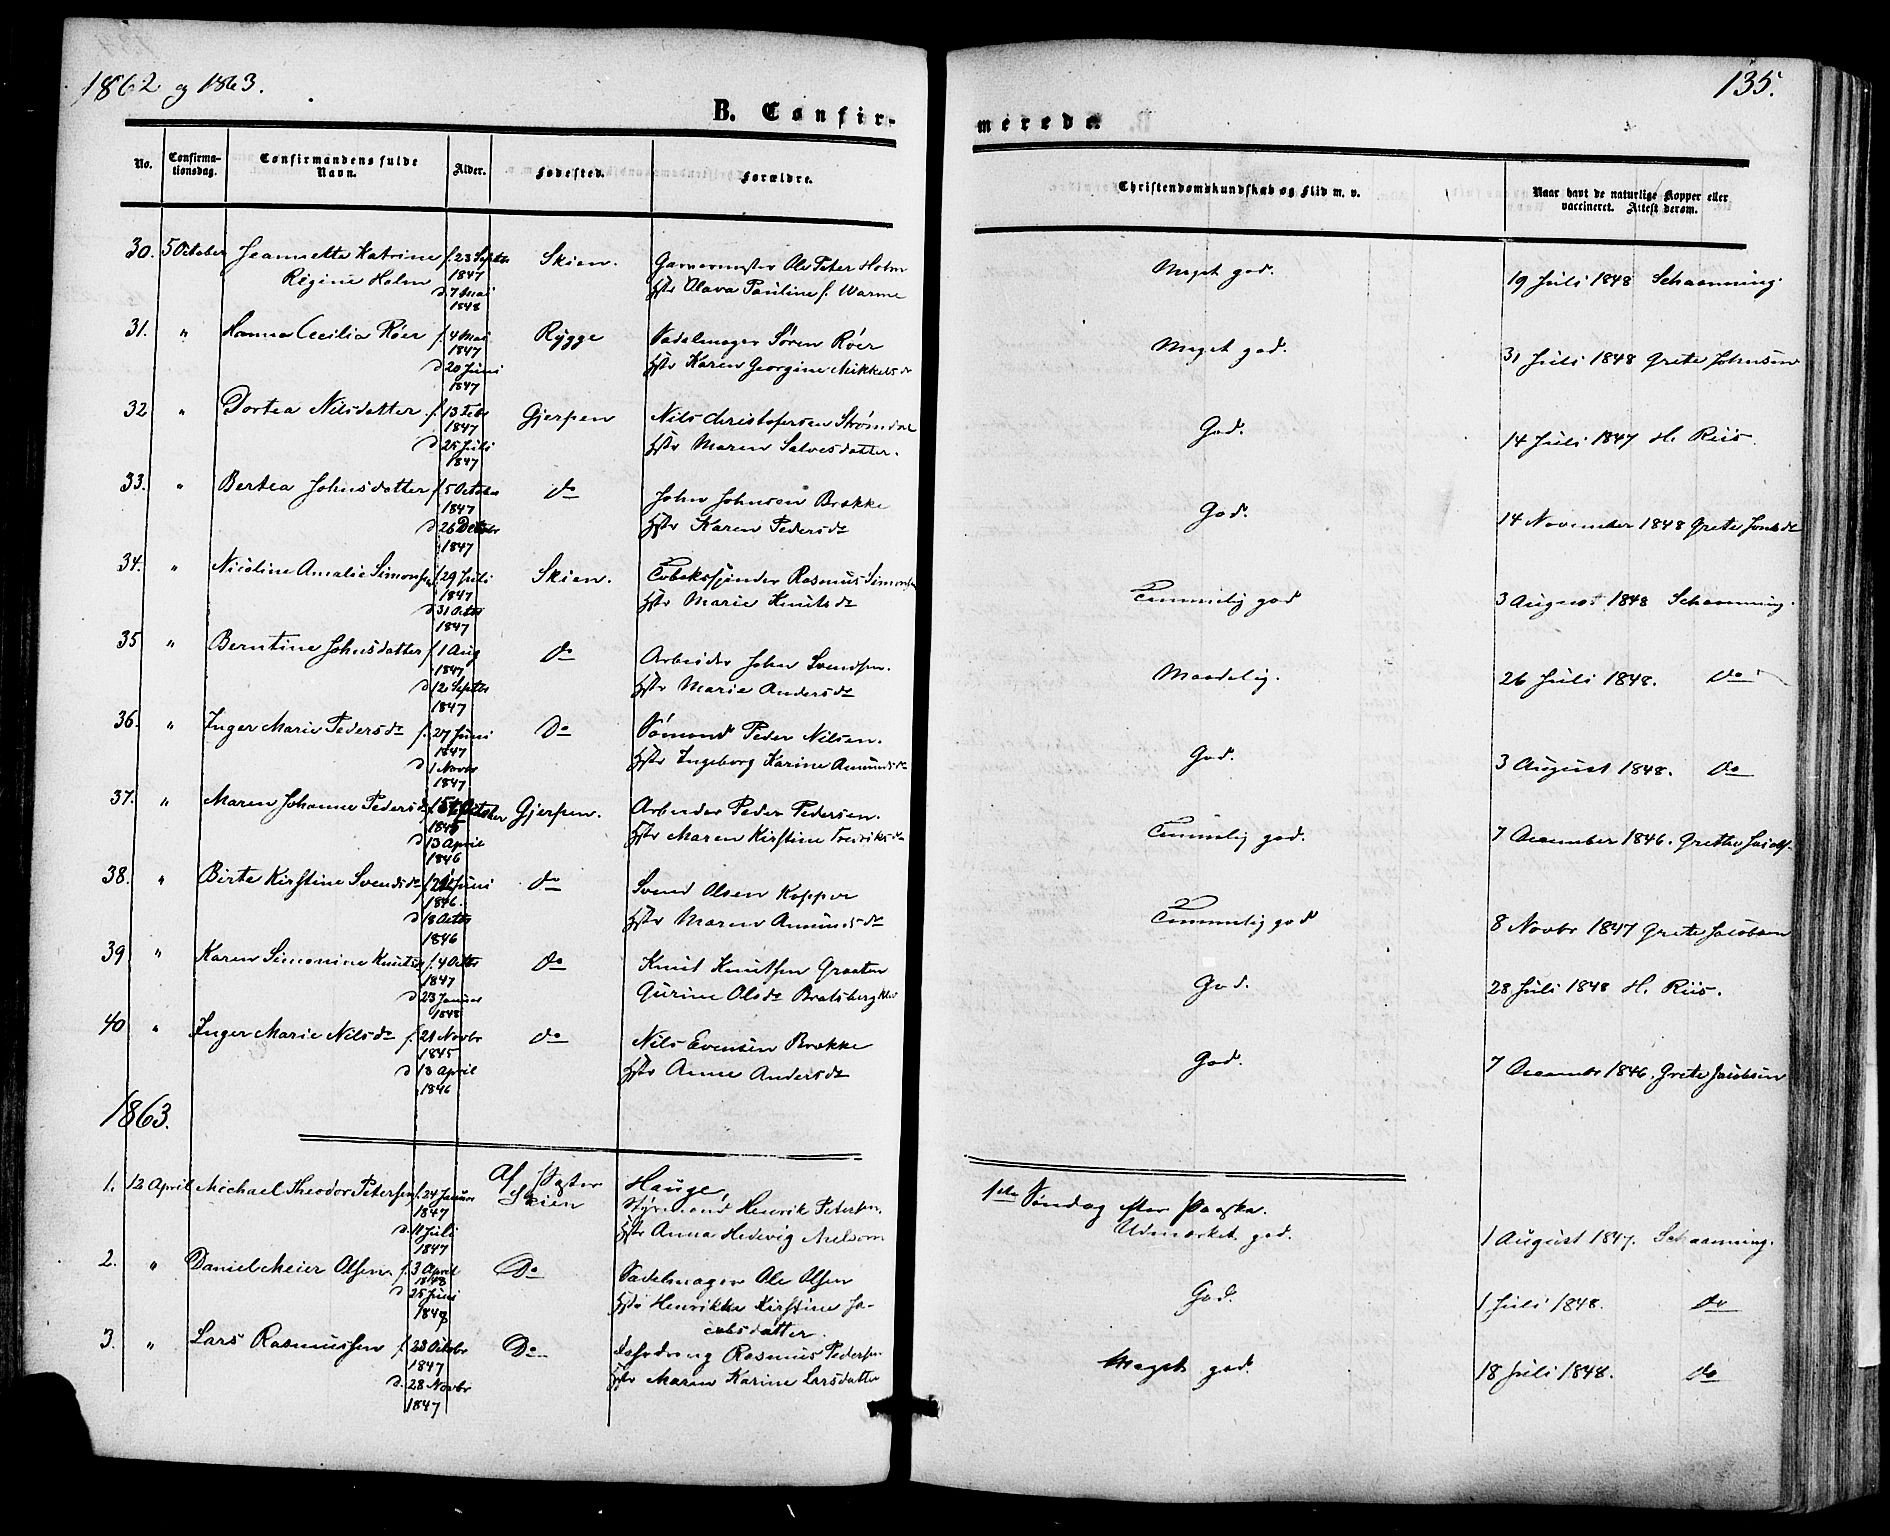 1862 og 1863.
135.
B. Confir-
merede.
No.
Confirma-
tionsdag.
Confirmandens fulde
Navn.
Alder.
Fødested.
Forældre.
Christendomskundskab og Flid m. v.
Naar havt de naturlige Kopper eller
vaccineret. Attest derom.
30. 5 October Jeannette Katrine f. 23 Septbr Skien. Garvermester Ole Peter Holm Meget god. 19 Juli 1848 Schaanning.
Regine Holm 1847 Hstr Olava Pauline f. Warme
d. 7 Mai
1848
31. " Hanna Cecilia Röer f. 4 Mai Rygge Sadelmager Søren Röer Meget god. 31 Juli 1848 Grete Johnsen
1847 Hstr Karen Georgine Mikkelsdr
d 20 Juni
1847
32 " Dortea Nilsdatter f. 13 Febr Gjerpen Nils Christofersen Strömdal God. 14 Juli 1847 H. Riis.
1847 Hstr Maren Salvesdatter.
d 25 Juli
1847
33. " Bertea Johnsdatter f 5 October do John Johnsen Brække God. 14 November 1848 Grete
1847 Hstr Karen Pedersdr
d 26 Decbr
1847
34. " Nicoline Amalie Simonsen f 29 Juli Skien. Tobaksspinder Rasmus Simonsen Temmelig god 3 August 1848 Schaanning.
1847 Hstr Marie Knutsdr
d 31 Octbr
1847
35 " Berntine Johnsdatter f 1 Aug do Arbeider John Svendsen. Maadelig. 26 Juli 1848. do
1847 Hstr Marie Andersdr
d 12 Septbr
1847
36. " Inger Marie Pedersdr f. 27 Juni Do Sømand Peder Nilsen. God. 3 August 1848. do
1847 Hstr Ingeborg Karine Amundsdr
d 1 Novbr
1847
37. " Maren Johanne Pedersdr October Gjerpen. Arbeider Peder Pedersen. Temmelig god. 7 December 1846. Grethe
1845 Hstr Maren Kirstine Fredriksdr
d 13 April
1846
38. " Birte Kirstine Svendsdr Juni do Svend Olsen Kopper Temmelig god 8 Novbr 1847 Grete Jacobsen
1846. Hstr Maren Amundsdr
d 18 Octbr
1846
39 " Karen Simonine Knutsdr f. 4 Octbr do Knut Knutsen Graaten God. 28 Juli 1848 H. Riis.
1847 Gurine Olsdr Bratsbergklev
d 23 Januar
1848
40 " Inger Marie Nilsdr f. 21 Novbr do Nils Evensen Brække God. 7 December 1846. Grete Jacobsen
1845 Hstr Anne Andersdr
d 13 April
1846
1863.
Af Pastor Hauge, 1ste Søndag efter Paaske.
1. 12 April Michael Theodor Petersen f. 24 Januar Skien Styrmand Henrik Petersen. Udmærket god. 1 August 1847. Schaanning.
1847 Hstr Anna Hedevig Nielsen
d. 11 Juli
1847
2. " Daniel Meier Olsen. f. 3 April Do Sadelmager Ole Olsen God. 1 Juli 1848. do
1848 Hstr Henrikke Kirstine Ja-
d 25 Juni cobsdatter.
1848
3. " Lars Rasmussen f. 23 Octobr Do Rasmus Pedersen Meget god. 18 Juli 1848. do
1847 Hstr Maren Karine Larsdatter
d. 28 Novbr
1847